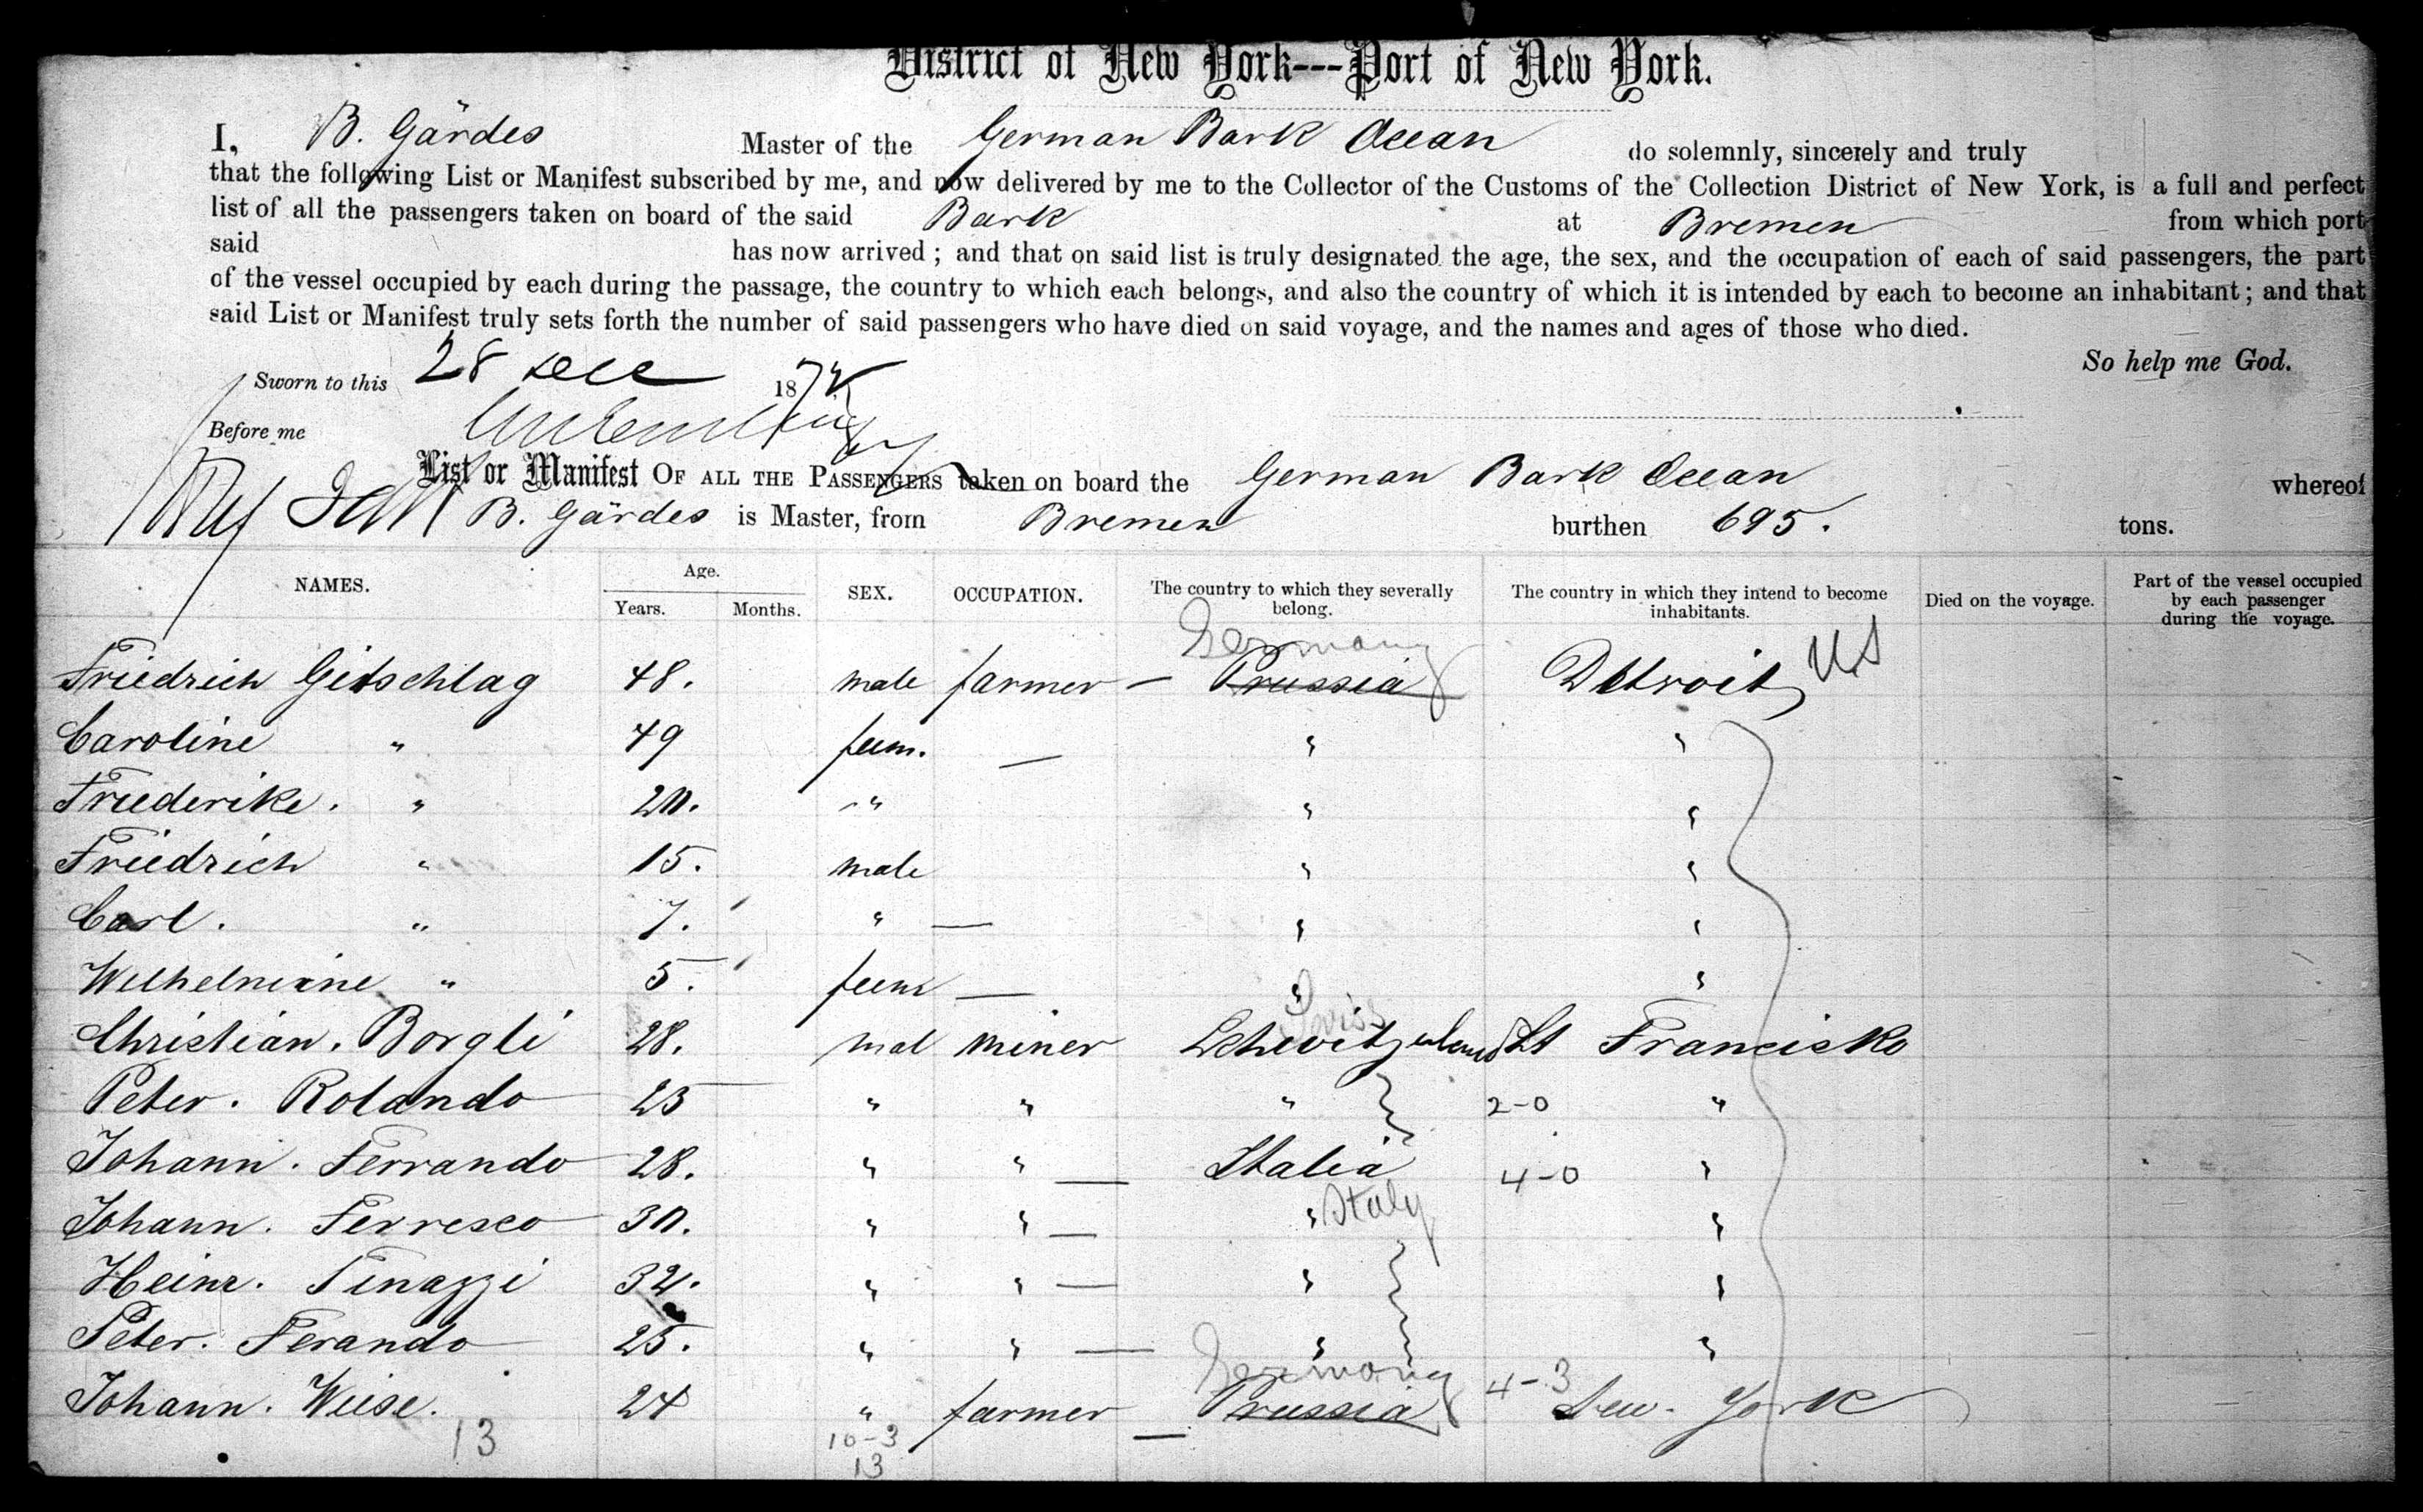 District of New York---Port of New York.
I, B. Gärdes Master of the German Bark Ocean do solemnly, sincerely and truly
that the following List or Manifest subscribed by me, and now delivered by me to the Collector of the Customs of the Collection District of New York, is a full and perfect
list of all the passengers taken on board of the said Bark at Bremen from which port
said has now arrived; and that on said list is truly designated the age, the sex, and the occupation of each of said passengers, the part
of the vessel occupied by each during the passage, the country to which each belongs, and also the country of which it is intended by each to become an inhabitant; and that
said List or Manifest truly sets forth the number of said passengers who have died on said voyage, and the names and ages of those who died.
So help me God.
Sworn to this 28 Dec 187
Before me
List or Manifest OF ALL THE PASSENGERS taken on board the German Bark Ocean whereof
B. Gärdes is Master, from Bremen burthen 695. tons.
NAMES. Age. Years. Months. SEX. OCCUPATION. The country to which they severally belong. The country in which they intend to become inhabitants. Died on the voyage. Part of the vessel occupied by each passenger during the voyage.
Germany
Friedrich Gitschlag 48. male farmer — Prussia Detroit US
Caroline " 49 fem. — " "
Friederike. " 20. " " "
Friedrich " 15. male " "
Carl. " 7. " — " "
Wilhelmine " 5. fem — " "
Swiss
Christian. Borgli 28. mal miner Schwitzerland St Francisko
Peter. Rolando 25 " " " 2-0 "
Johann. Ferrando 28. " " — Italia 4-0 "
Johann. Ferresco 30. " " — " Italy "
Heinr. Tinazzi 32. " " — " "
Peter. Ferando 25. " " — " "
Germany 4-3
Johann. Weise. 24 " farmer — Prussia New. York
13 10-3
13